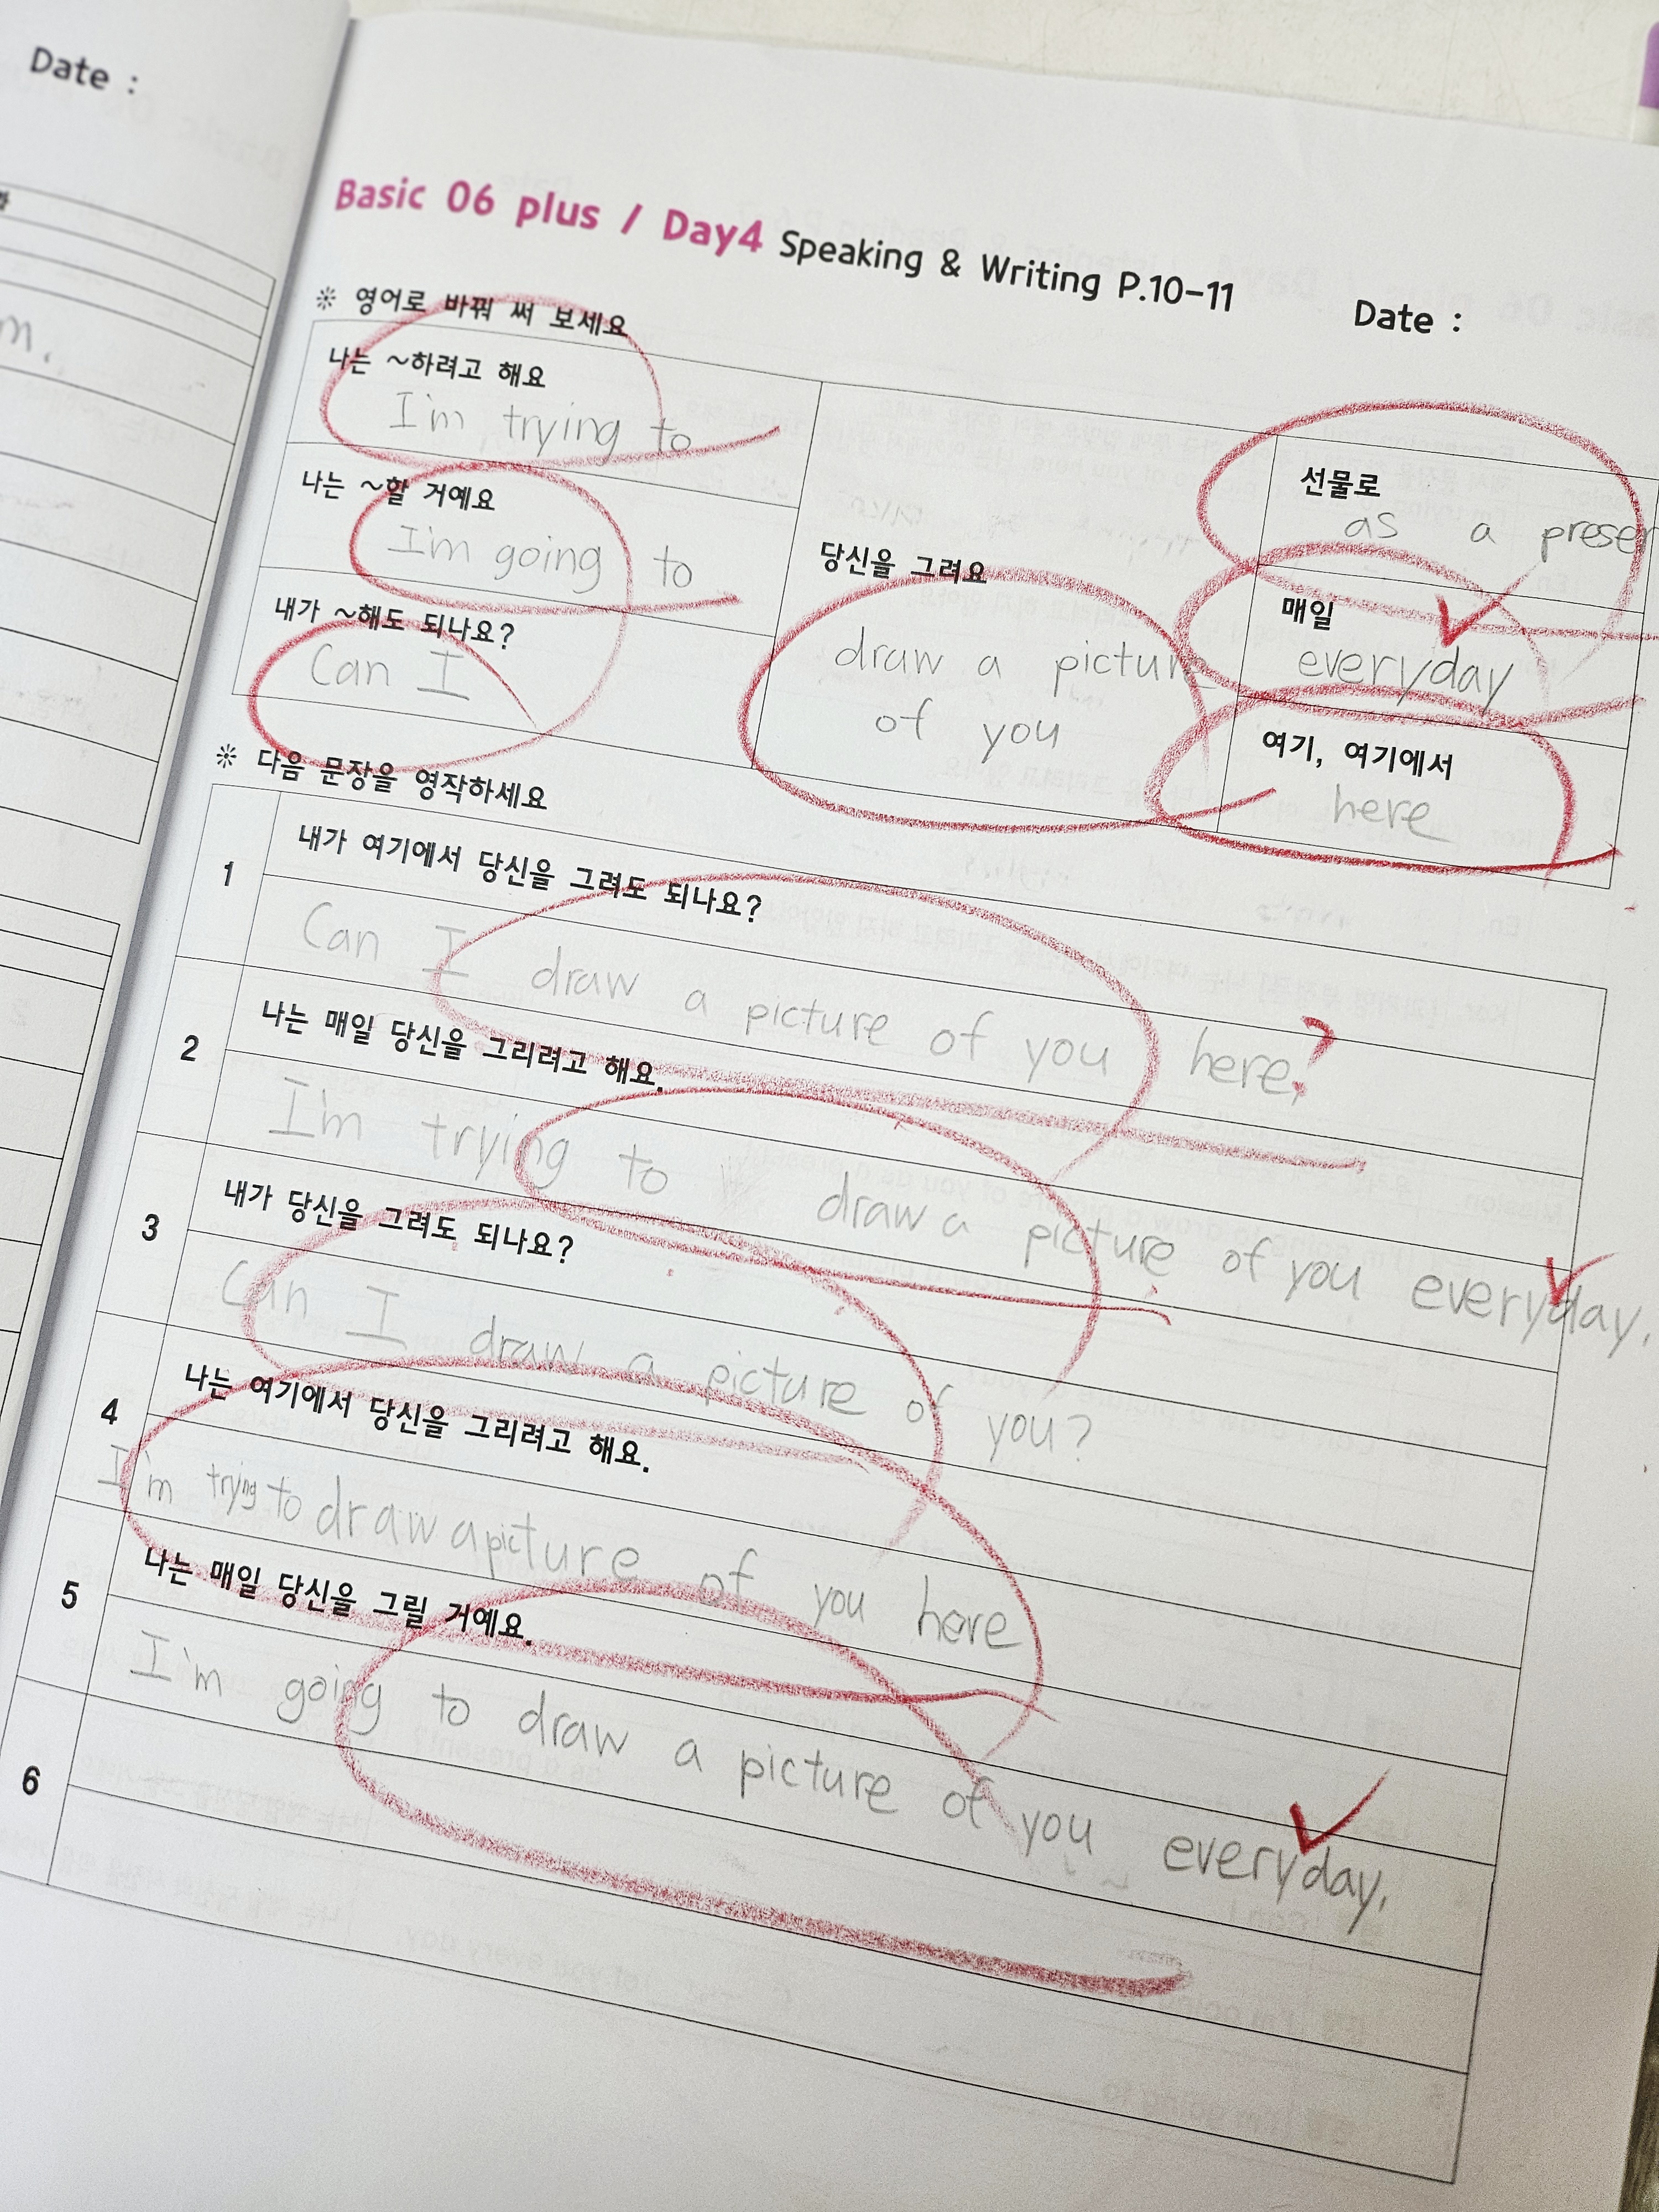 Date :
m.
Basic 06 plus / Day4 Speaking & Writing P.10-11
Date :
※ 영어로 바꿔 써 보세요
나는 ~하려고 해요
I'm trying to
나는 ~할 거예요
I'm going to
내가 ~해도 되나요?
Can I
당신을 그려요
draw a picture
of you
선물로
as a presen
매일
everyday
여기, 여기에서
here
※ 다음 문장을 영작하세요
1
내가 여기에서 당신을 그려도 되나요?
Can I draw a picture of you here?
2
나는 매일 당신을 그리려고 해요.
I'm trying to draw a picture of you everyday.
3
내가 당신을 그려도 되나요?
Can I draw a picture of you?
4
나는 여기에서 당신을 그리려고 해요.
I'm trying to draw a picture of you here
5
나는 매일 당신을 그릴 거예요.
I'm going to draw a picture of you everyday.
6